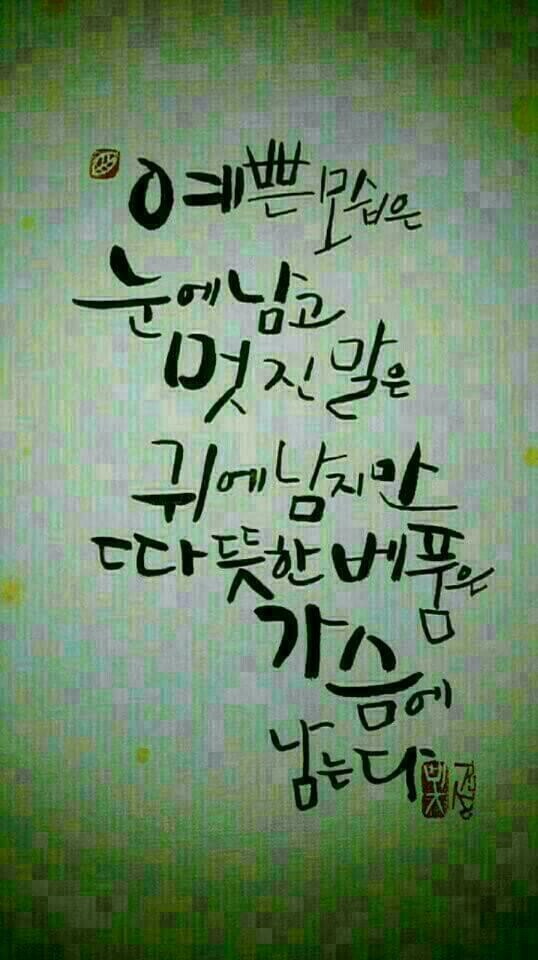 예쁜 모습은
눈에 남고
멋진 말은
귀에 남지만
따뜻한 베풂은
가슴에
남는다.